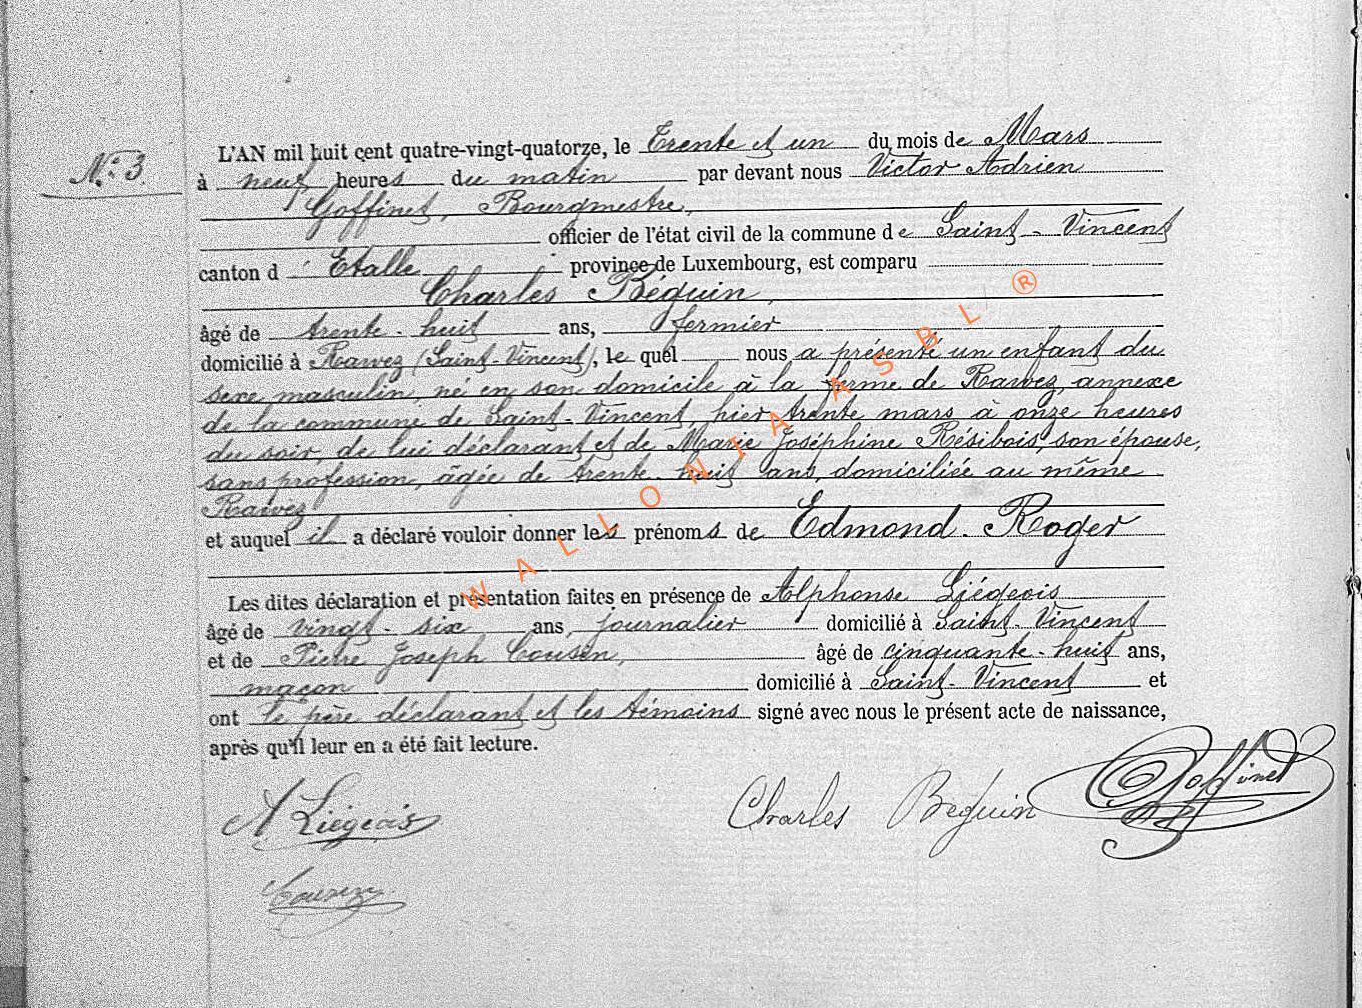 N.° 3
L'AN mil huit cent quatre-vingt-quatorze, le Trente et un du mois de Mars
à neuf heures du matin par devant nous Victor Adrien
Goffinet, Bourgmestre,
officier de l'état civil de la commune de Saint-Vincent
canton d'Etalle province de Luxembourg, est comparu
Charles Béguin,
âgé de trente-huit ans, fermier
domicilié à Rawez (Saint-Vincent), le quel nous a présenté un enfant du
sexe masculin, né en son domicile à la ferme de Rawez, annexe
de la commune de Saint-Vincent, hier trente mars à onze heures
du soir, de lui déclarant et de Marie Joséphine Résibois, son épouse,
sans profession, âgée de trente-huit ans, domiciliée au même
Rawez
et auquel il a déclaré vouloir donner les prénoms de Edmond-Roger
Les dites déclaration et présentation faites en présence de Alphonse Liégeois
âgé de vingt-six ans, journalier domicilié à Saint-Vincent
et de Pierre Joseph Cousin, âgé de cinquante-huit ans,
maçon domicilié à Saint-Vincent et
ont le père déclarant et les témoins signé avec nous le présent acte de naissance,
après qu'il leur en a été fait lecture.
A Liégeois Charles Béguin Goffinet
WALLONIA ASBL ®